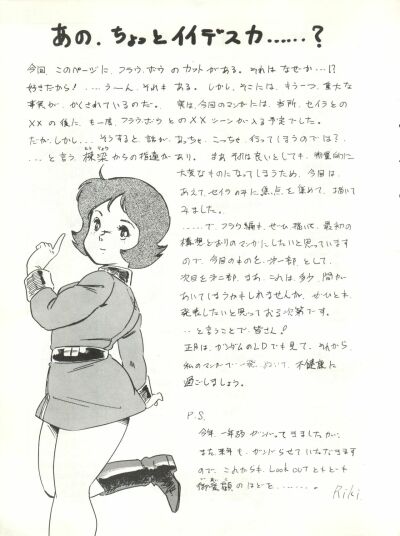 あの、ちょっとイイデスカ……？
今回、このページに、フラウ・ボウのカットがある。それはなぜか…!?
好きだから！……うーん、それもある。しかし、そこには、もう一つ、重大な
事実が、かくされているのだ。実は、今回のマンガには、当初、セイラとの
××の後に、も一度、フラウ・ボウとの××シーンが入る予定でした。
だが、しかし…、そうすると、話が、あっちゃ、こっちゃ、行ってしまうのでは？、
…と言う棟梁からの指適があり。まあ、それは良いとしても、物量的に
大変なものになってしまうため、今回は、
あえてセイラのみに焦点を集めて、描いて
みました。
……で、フラウ編も、ぜーム描いて、最初の
構想どおりのマンガにしたいと思っています
ので、今回のものを、第一部として、
次回を第二部、まあ、これは、多少、間が
あいてしまうかもしれませんが、ぜひとも、
発表したいと思っておる次第です。
…と言うことで、皆さん！
正月は、ガンダムのLDでも見て、それから、
私のマンガで一発ぬいて、不健康に
過ごしましょう。
P.S.
今年一年がんばってきましたが、
また来年も、がんばらせていただきます
ので、これからも、Look outともども
御愛顧のほどを………。
Riki